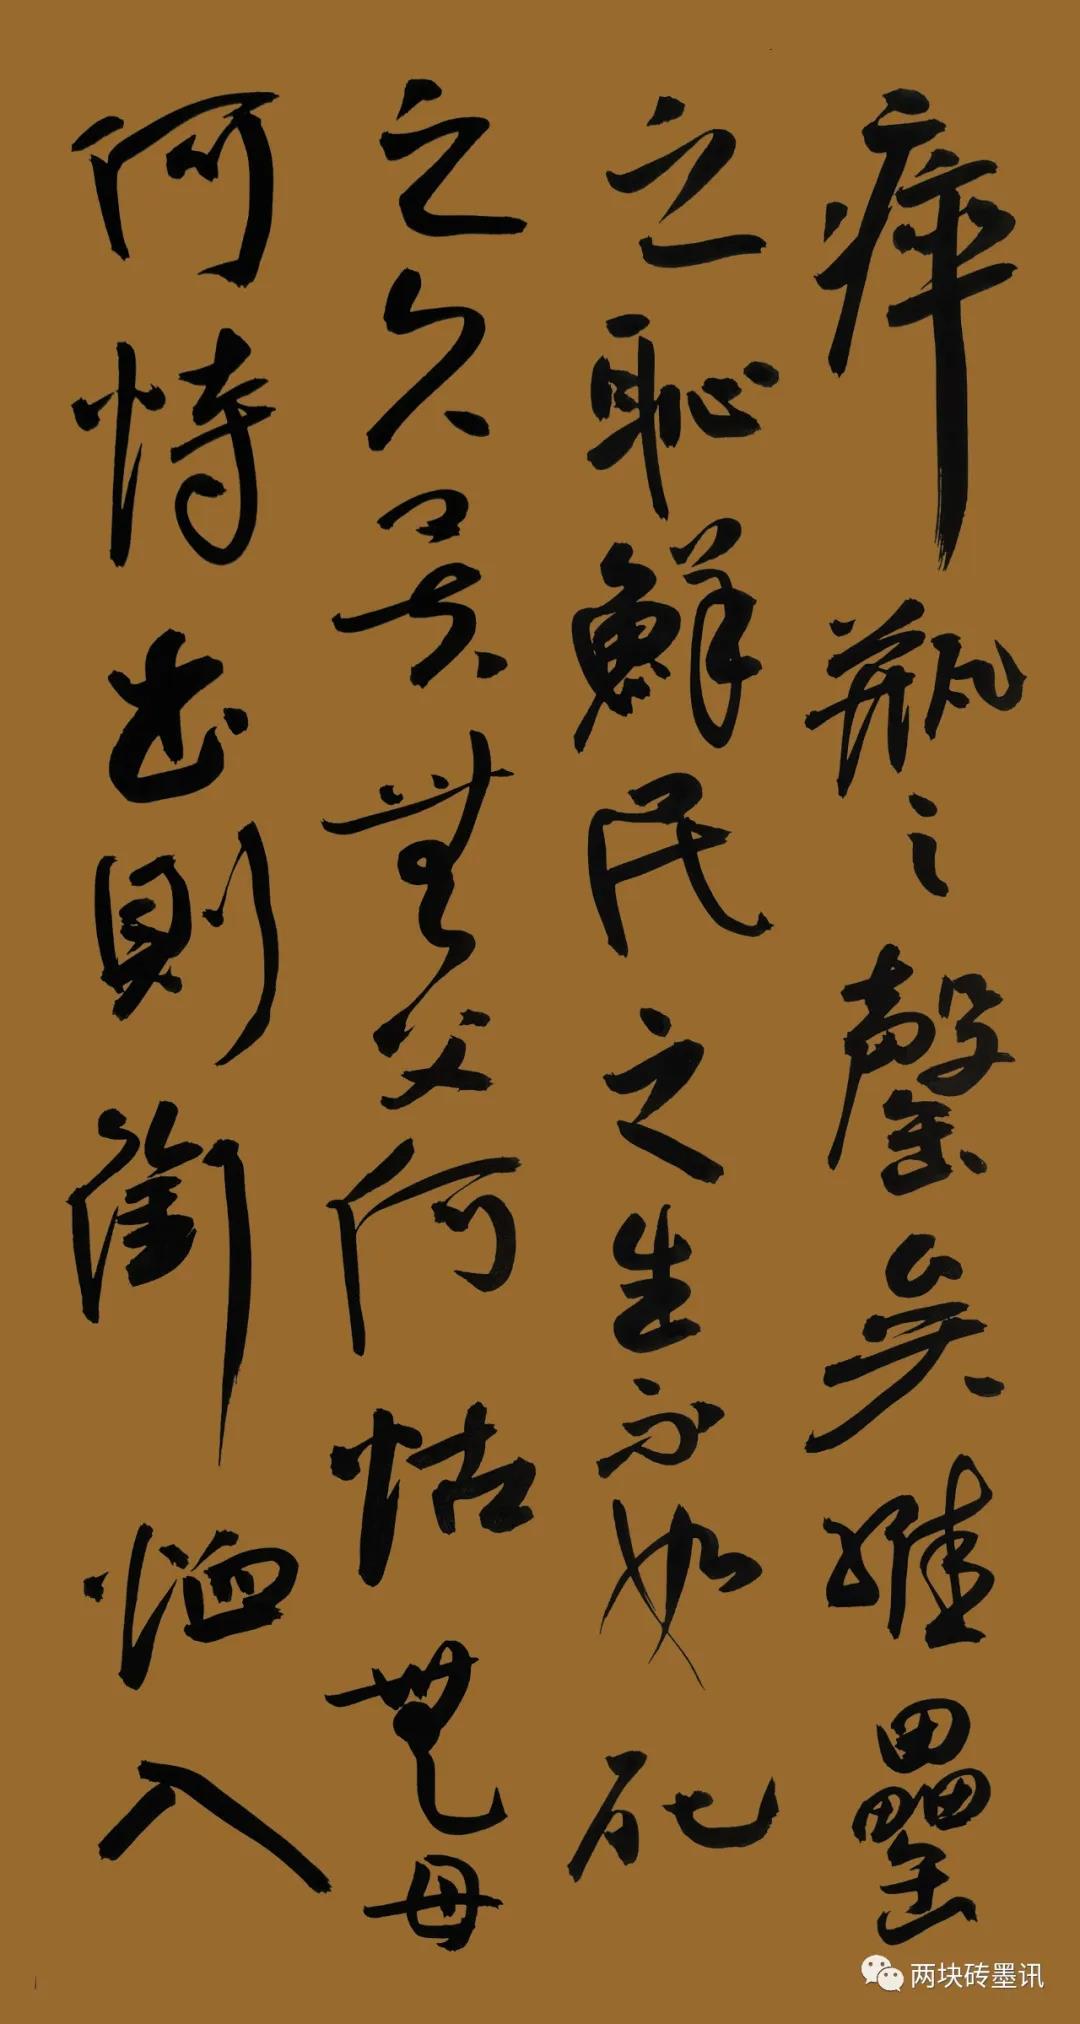 瘁瓶之罄矣維罍
之恥鮮民之生不如死
之久矣無父何怙無母
何恃出則銜恤入
两块砖墨讯